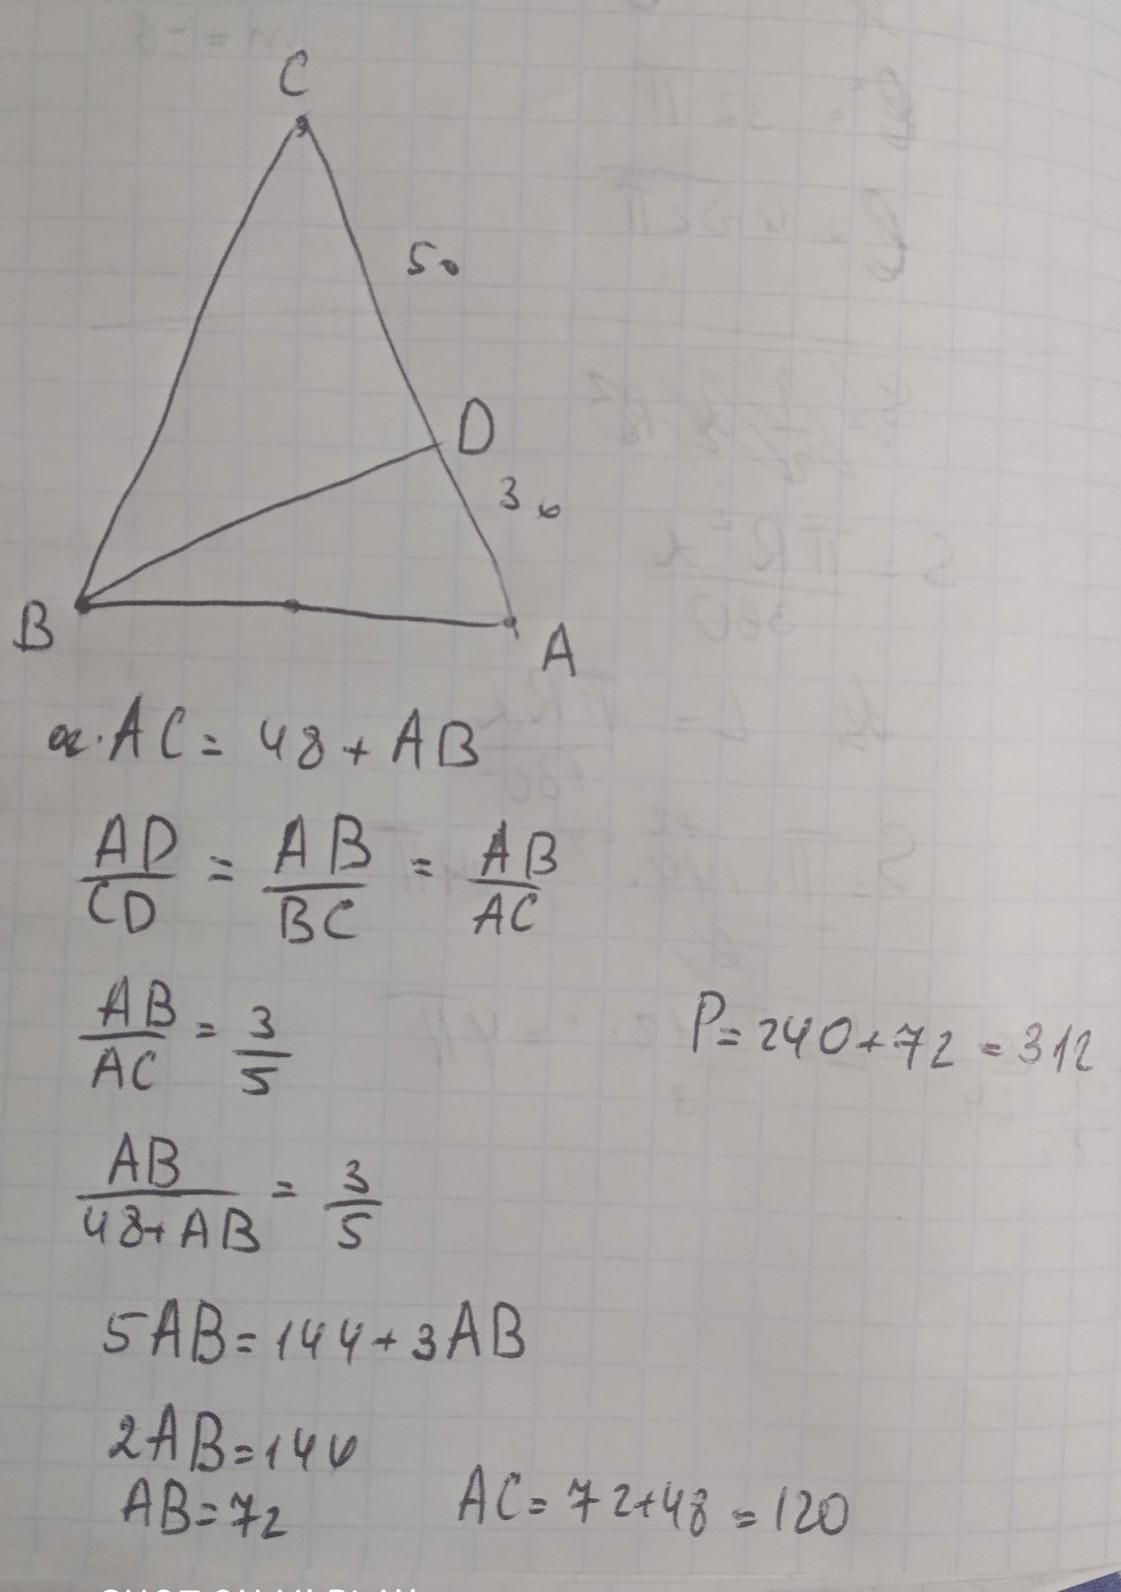 C
50
D
30
B
A
AC = 48 + AB
AD/CD = AB/BC = AB/AC
AB/AC = 3/5
P = 240 + 72 = 312
AB/48+AB = 3/5
5AB = 144 + 3AB
2AB = 144
AB = 72
AC = 72+48 = 120